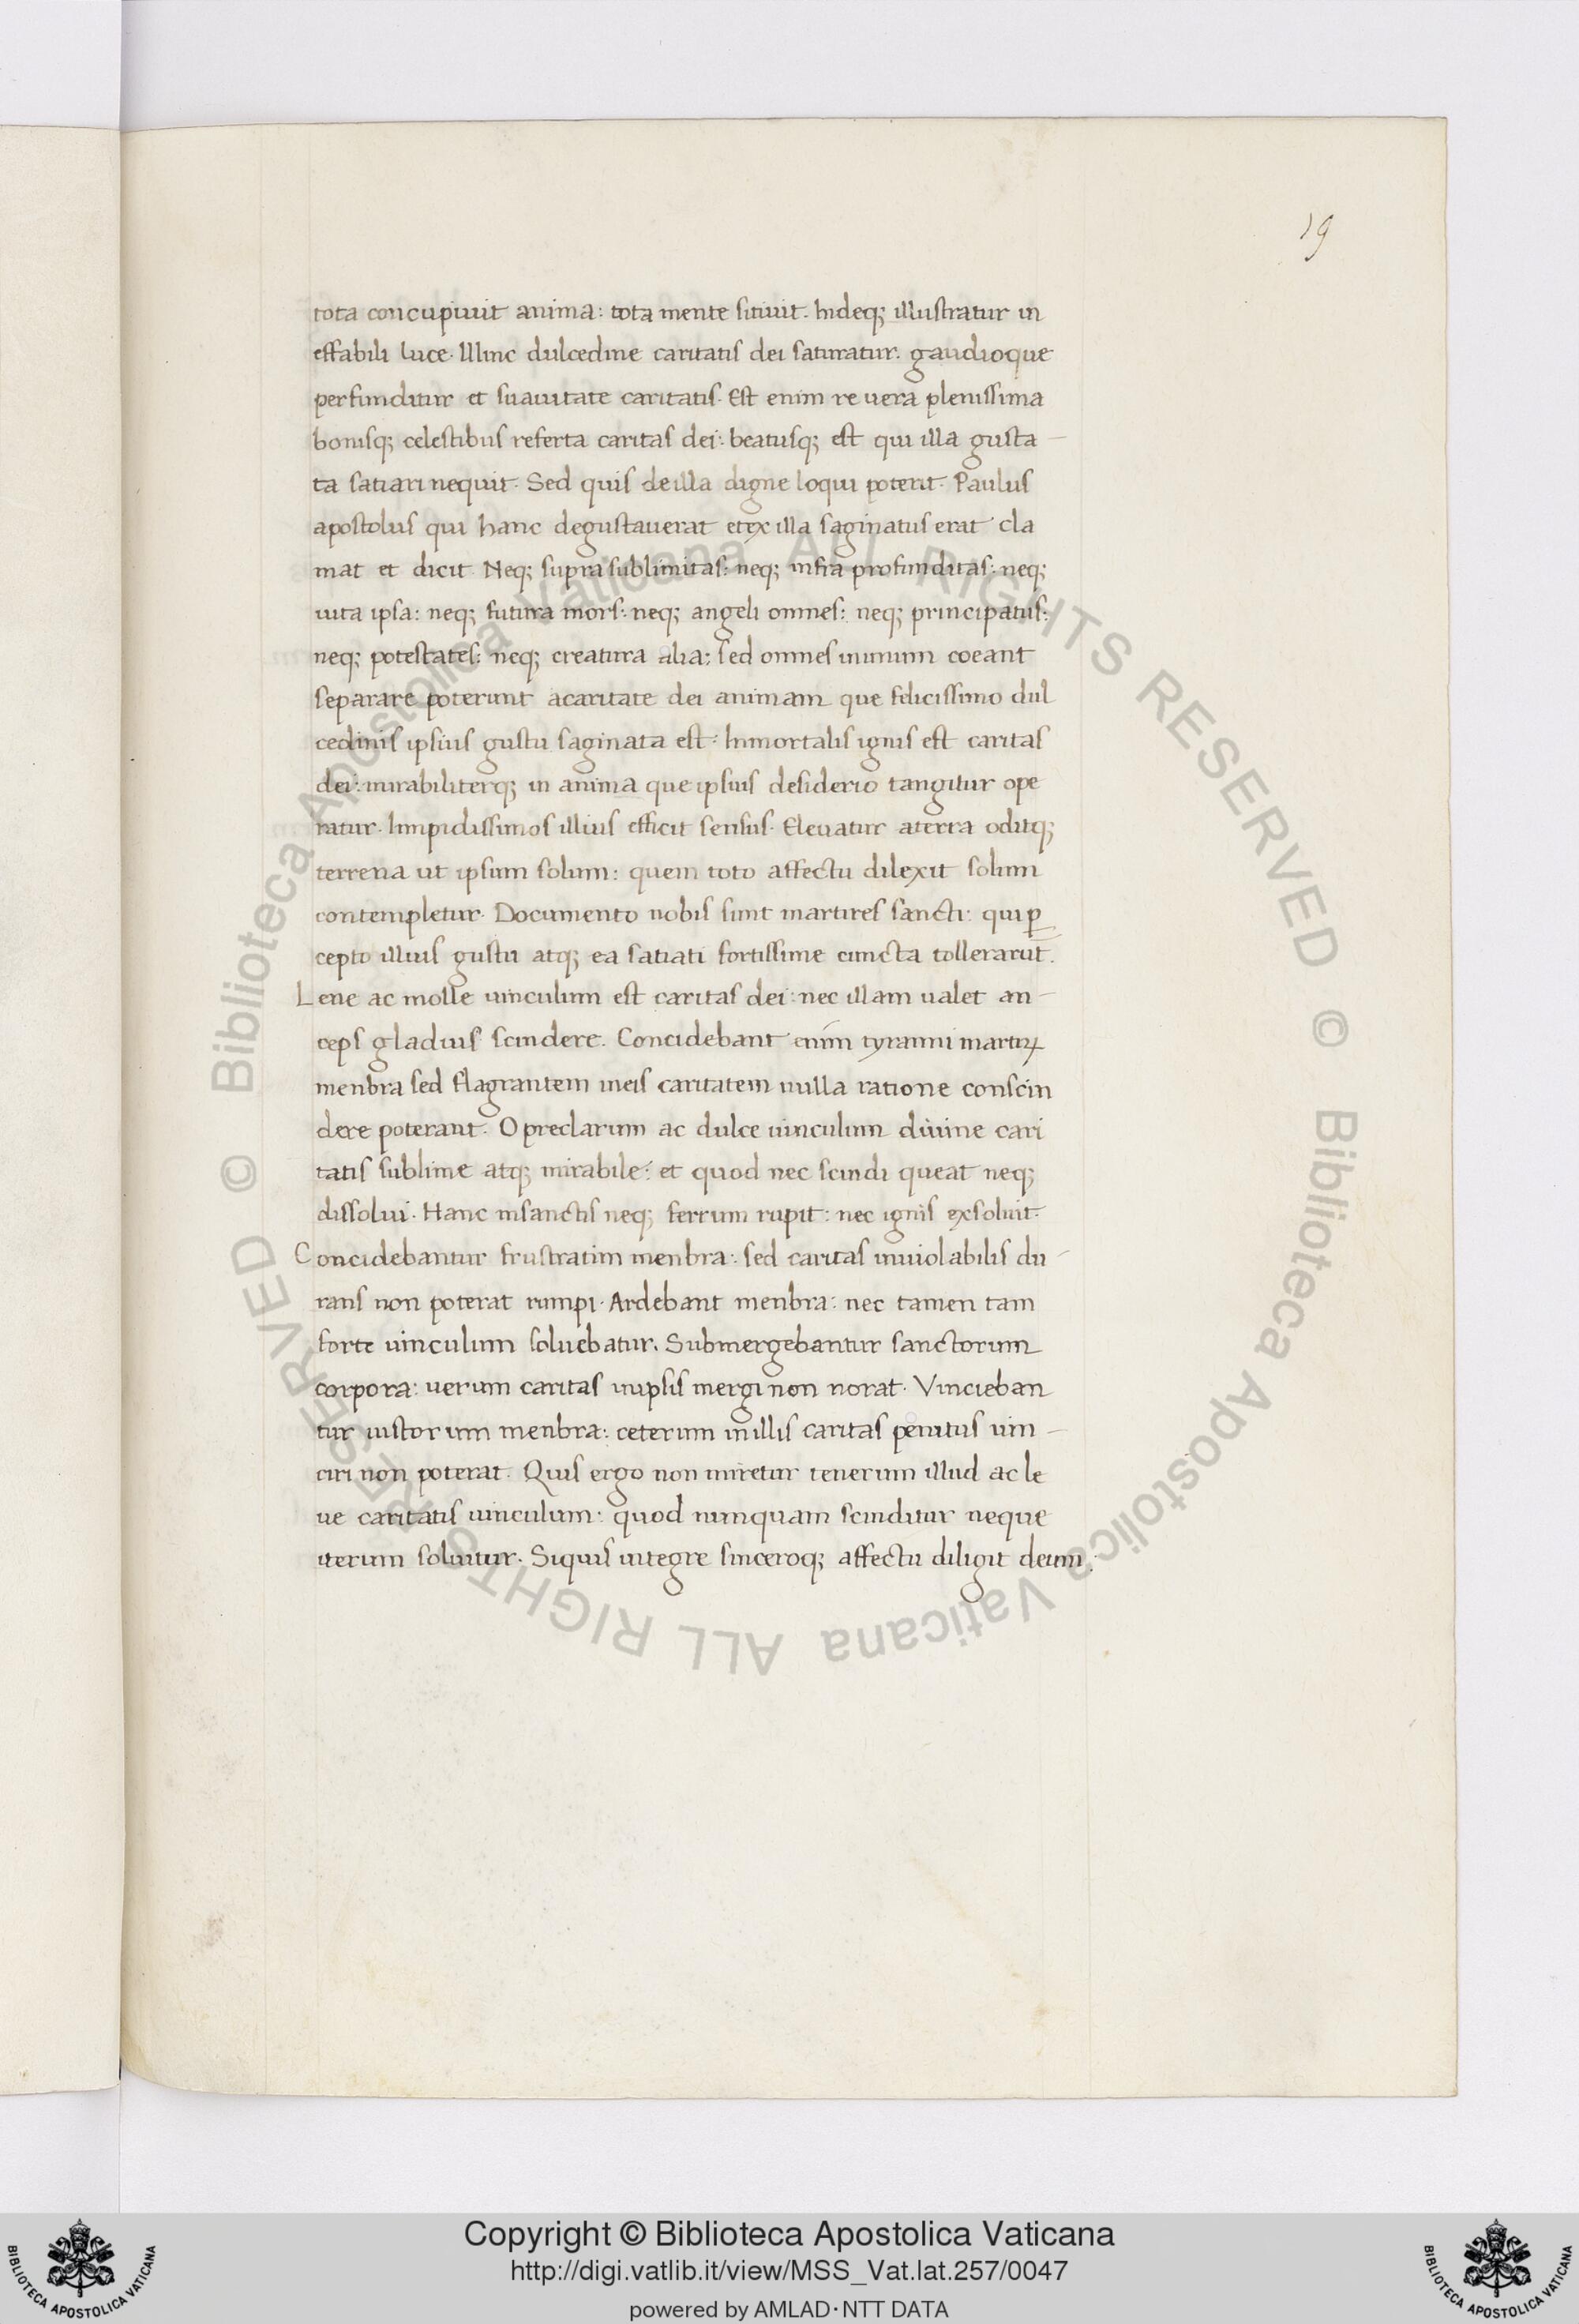 19
tota concupiuit anima: tota mente sitiuit. hideq; illustratur in
effabili luce. Illinc dulcedine caritatis dei saturatur. gaudioque
perfunditur et suauitate caritatis. Est enim re uera plenissima
bonisq; celestibus referta caritas dei: beatusq; est qui illa gusta-
ta satiari nequit. Sed quis de illa digne loqui poterit. Paulus
apostolus qui hanc degustauerat et ex illa saginatus erat cla
mat et dicit. Neq; supra sublimitas: neq; infra profunditas: neq;
uita ipsa: neq; futura mors: neq; angeli omnes: neq; principatus:
neq; potestates: neq; creatura alia: sed omnes in unum coeant
separare poterunt a caritate dei animam que felicissimo dul
cedinis ipsius gustu saginata est: Inmortalis ignis est caritas
dei: mirabiliterq; in anima que ipsius desiderio tangitur ope
ratur. limpidissimos illius efficit sensus. Eleuatur a terra oditq;
terrena ut ipsum solum: quem toto affectu dilexit solum
contempletur. Documento nobis sunt martires sancti: qui p̱
cepto illius gustu atq; ea satiati fortissime cuncta tollerarūt.
Lene ac molle uinculum est caritas dei: nec illam ualet an-
ceps gladius scindere. Concidebant enim tyranni martirꝝ
menbra sed flagrantem in eis caritatem nulla ratione conscin
dere poterant. O preclarum ac dulce uinculum diuine cari
tatis sublime atq; mirabile: et quod nec scindi queat neq;
dissolui. Hanc in sanctis neq; ferrum rupit: nec ignis exsoluit.
Concidebantur frustratim menbra: sed caritas inuiolabilis du-
rans non poterat rumpi. Ardebant menbra: nec tamen tam
forte uinculum soluebatur. Submergebantur sanctorum
corpora: uerum caritas in ipsis mergi non norat. Vincieban
tur iustorum menbra: ceterum in illis caritas penitus uin-
ciri non poterat. Quis ergo non miretur tenerum illud ac le
ue caritatis uinculum: quod nunquam scinditur neque
iterum soluitur. Siquis integre sinceroq; affectu diligit deum:
© Biblioteca Apostolica Vaticana ALL RIGHTS RESERVED © Biblioteca Apostolica Vaticana ALL RIGHTS RESERVED
Copyright © Biblioteca Apostolica Vaticana
http://digi.vatlib.it/view/MSS_Vat.lat.257/0047
powered by AMLAD·NTT DATA
BIBLIOTECA APOSTOLICA VATICANA
BIBLIOTECA APOSTOLICA VATICANA